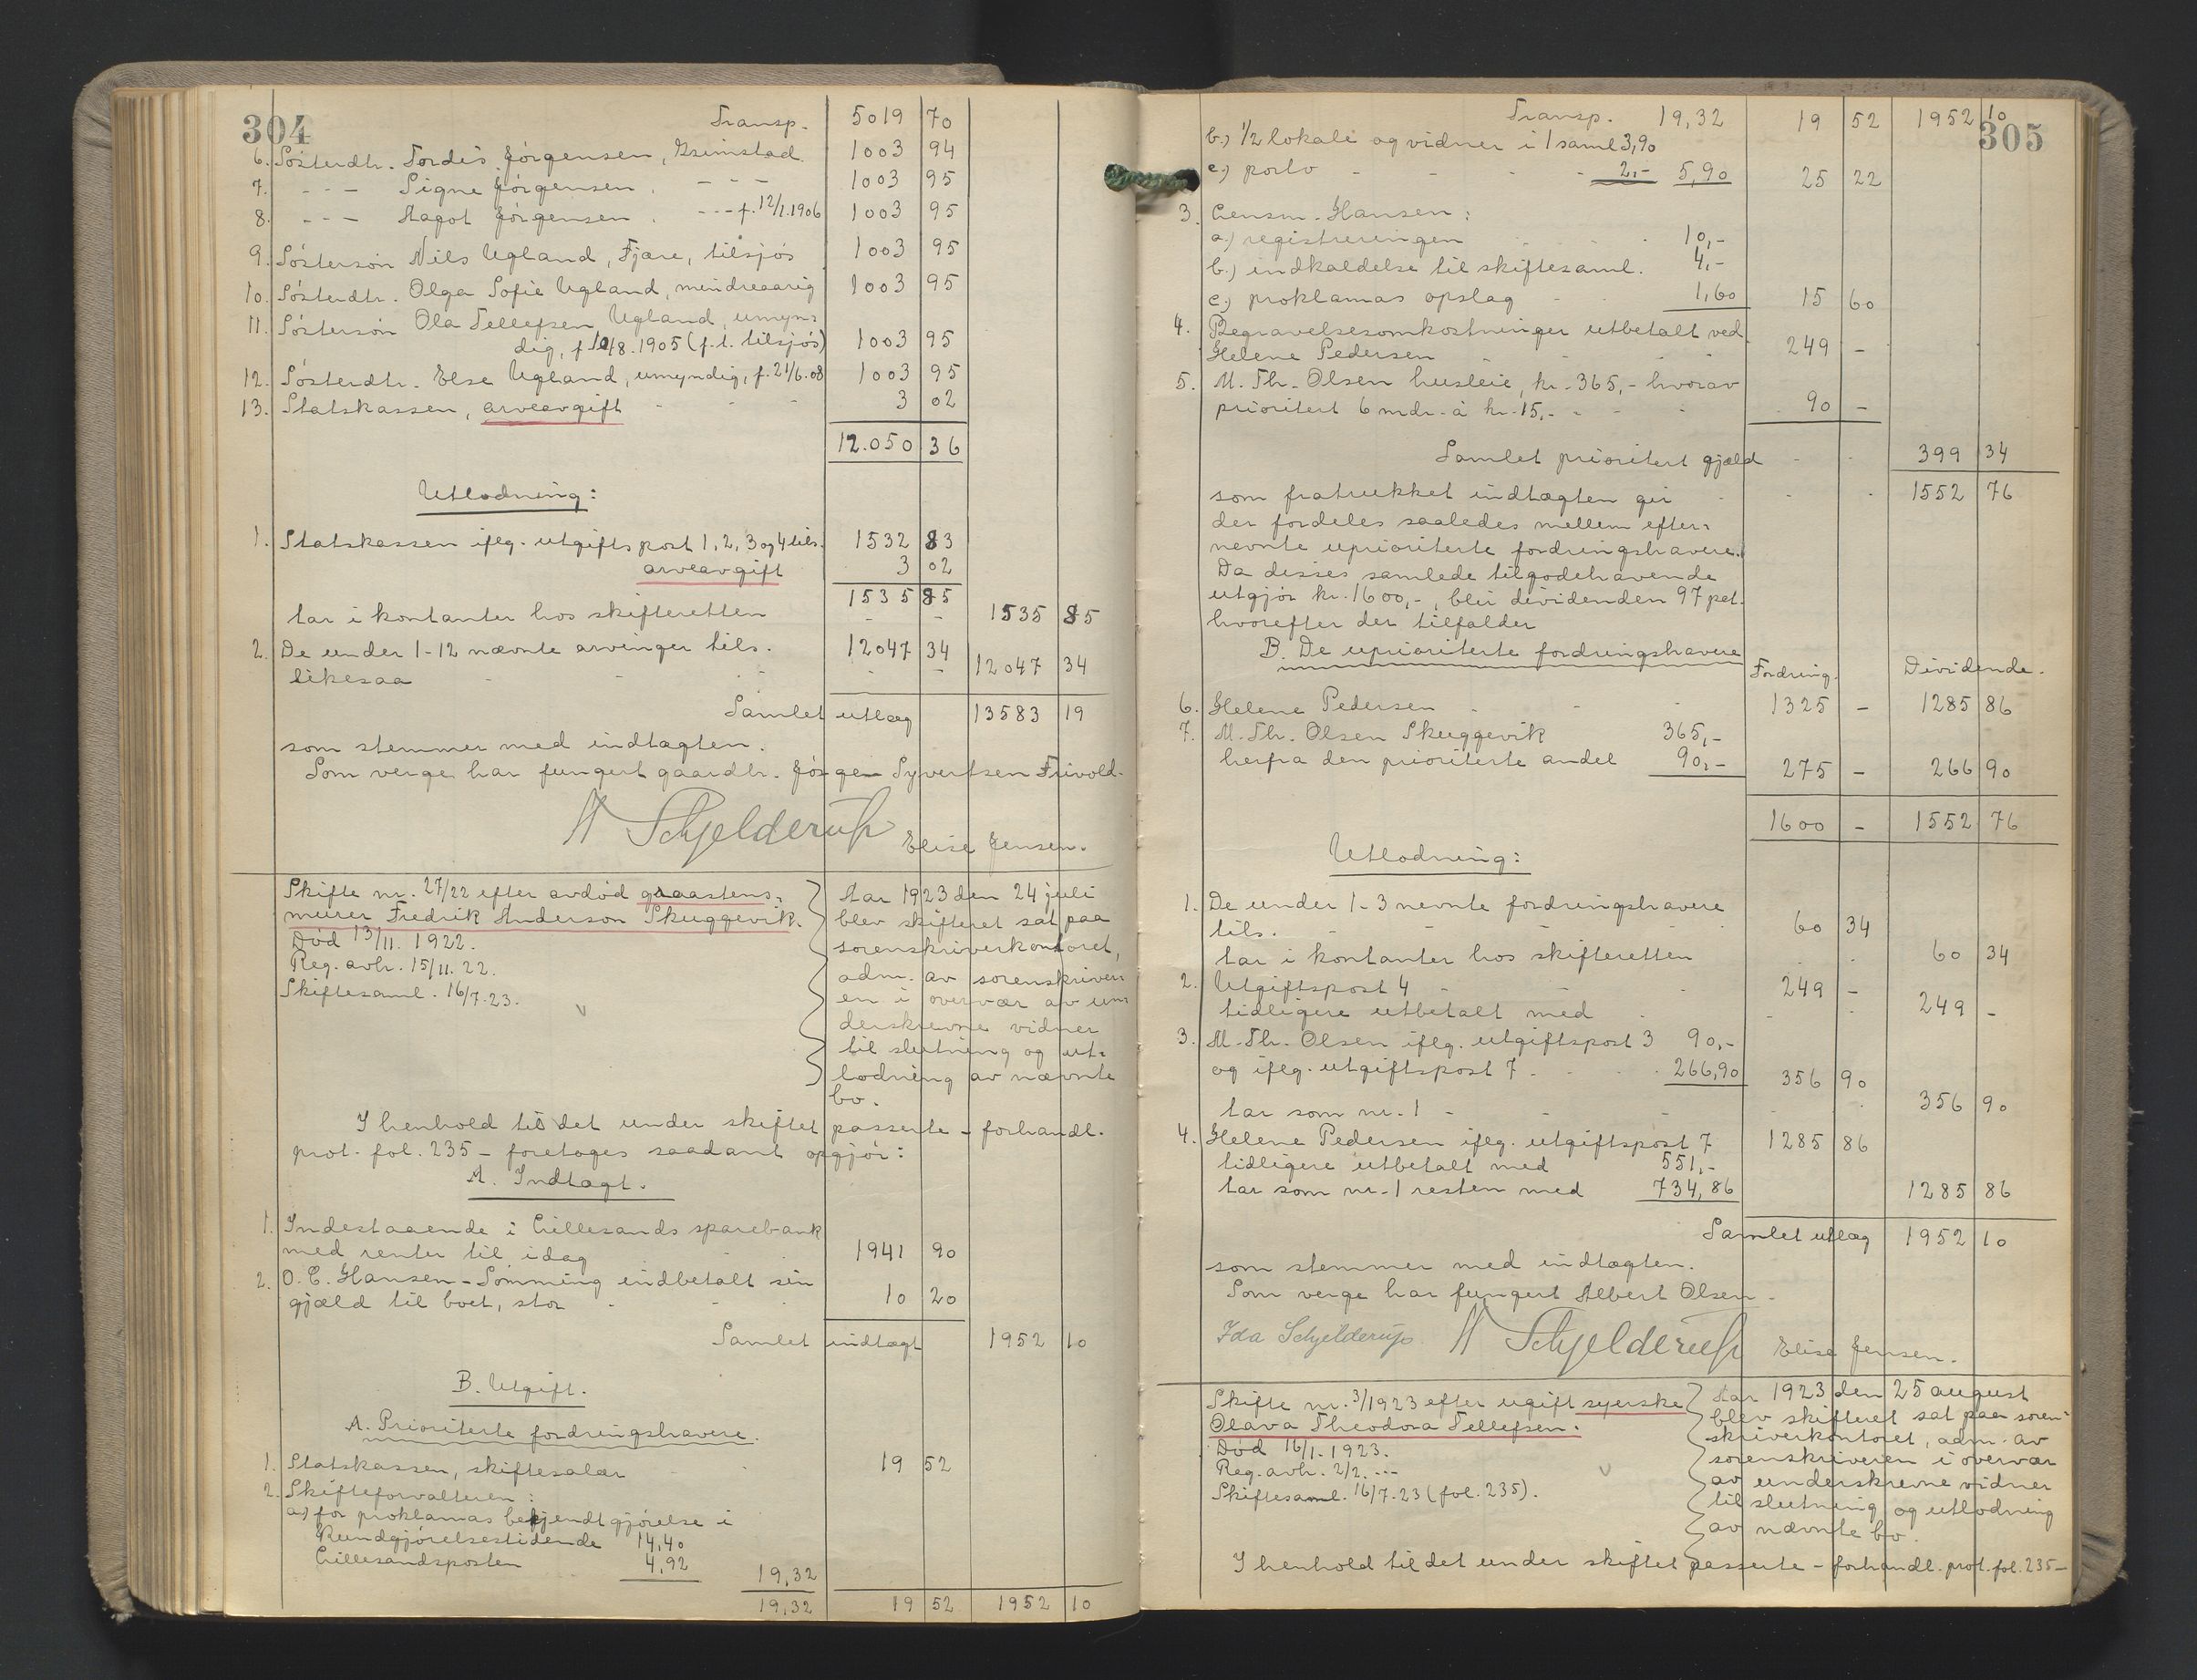 304
Transp. 5019 70
6. Søsterdtr. Tordis Jørgensen, Grimstad. 1003 94
7. - - - Signe Jørgensen . - - - 1003 95
8. - - - Aagot Jørgensen . - - - f. 12/1.1906 1003 95
9. Søstersøn Nils Ugland, Fjære, tilsjøs 1003 95
10. Søsterdtr. Olga Sofie Ugland, mindreaarig 1003 95
11. Søstersøn Ola Tellefsen Ugland, umyn=
dig, f. 10/8.1905 (f.t. tilsjøs) 1003 95
12. Søsterdtr. Else Ugland, umyndig, f. 21/6.08 1003 95
13. Statskassen, arveavgift - - - 3 02
12.050 36
Utlodning:
1. Statskassen ifлg. utgiftspost 1, 2, 3 og 4 tils. 1532 83
arveavgift 3 02
1535 85
tar i kontanter hos skifteretten - - 1535 85
2. De under 1-12 nævnte arvinger tils. 12047 34
likesaa - - - - - 12047 34
Samlet utlæg 13583 19
som stemmer med indtægten.
Som verge har fungert gaardbr. Jørgen Syvertsen Frivold.
A Schjelderup Elise Jensen.
Skifte nr. 27/22 efter avdød graastens=
murer Fredrik Anderson Skuggevik.
Død 13/11. 1922.
Reg. avh. 15/11. 22.
Skiftesaml. 16/7.23.
Aar 1923 den 24 juli
blev skifteret sat paa
sorenskriverkontoret,
adm. av sorenskriver=
en i overvær av un=
derskrevne vidner
til slutning og ut=
lodning av nævnte
bo.
I henhold til det under skiftet passerte - forhandl.
prot. fol. 235 - foretages saadant opgjør:
A. Indtægt.
1. Indestaaende i Lillesands sparebank
med renter til idag 1941 90
2. O. C. Hansen - Somming indbetalt sin
gjæld til boet, stor - - 10 20
Samlet indtægt 1952 10
B. Utgift.
A. Prioriterte fordringshavere.
1. Statskassen, skiftesalær 19 52
2. Skifteforvalteren:
a) for proklamas bekjendtgjørelse i
Kundgjørelsestidende 14,40
Lillesandsposten 4,92 19,32
19,32 19 52 1952 10
305
Transp. 19,32 19 52 1952 10
b.) 1/2 lokale og vidner i 1 saml. 3,90
c.) porto - - - - 2,- 5,90 25 22
3. Lensm. Hansen:
a.) registreringen - - - 10,-
b.) indkaldelse til skiftesaml. 4,-
c.) proklamas opslag - - 1,60 15 60
4. Begravelsesomkostninger utbetalt ved
Helene Pedersen - - - - 249 -
5. M. Th. Olsen husleie, kr. 365,- hvorav
prioritert 6 mdr. á kr. 15,- - - 90 -
Samlet prioritert gjæld - - 399 34
som fratrukket indtægten gir - - - 1552 76
der fordeles saaledes mellem efter=
nevnte uprioriterte fordringshavere.
Da disses samlede tilgodehavende
utgjør kr. 1600,-, blir dividenden 97 pct.
hvorefter der tilfalder
B. De uprioriterte fordringshavere
Fordring. Dividende.
6. Helene Pedersen - - - 1325 - 1285 86
7. M. Th. Olsen Skuggevik 365,-
herfra den prioriterte andel 90,- 275 - 266 90
1600 - 1552 76
Utlodning:
1. De under 1-3 nevnte fordringshavere
tils. - - - - - 60 34
tar i kontanter hos skifteretten - - 60 34
2. Utgiftspost 4 - - - 249 -
tidligere utbetalt med - - - 249 -
3. M. Th. Olsen ifлg. utgiftspost 3 90,-
og ifлg. utgiftspost 7 - - - 266,90 356 90
tar som nr. 1 - - - - - 356 90
4. Helene Pedersen ifлg. utgiftspost 7 1285 86
tidligere utbetalt med 551,-
tar som nr. 1 resten med 734,86 1285 86
Samlet utlæg 1952 10
som stemmer med indtægten.
Som verge har fungert Albert Olsen.
Ida Schjelderup. A Schjelderup Elise Jensen.
Skifte nr. 3/1923 efter ugift syerske
Olava Theodora Tellefsen.
Død 16/1. 1923.
Reg. avh. 2/2. - - -
Skiftesaml. 16/7.23 (fol. 235).
Aar 1923 den 25 august
blev skifteret sat paa soren=
skriverkontoret, adm. av
sorenskriveren i overvær
av underskrevne vidner
til slutning og utlodning
av nævnte bo.
I henhold til det under skiftet passerte - forhandl. prot. fol. 235 -